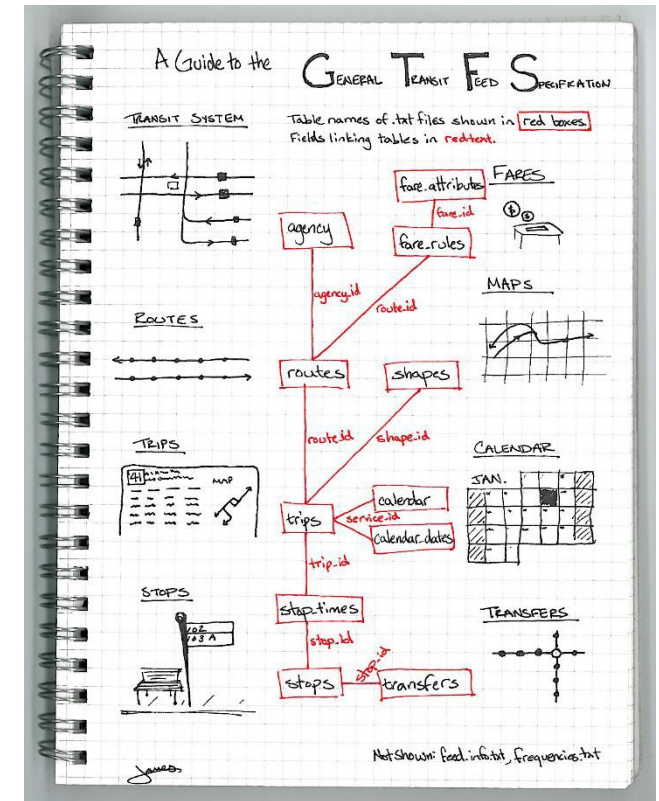 A Guide to the GENERAL TRANSIT FEED SPECIFICATION
TRANSIT SYSTEM
Table names of .txt files shown in red boxes.
Fields linking tables in red text.
fare_attributes
FARES
fare_id
$ $
agency
fare_rules
agency_id
route_id
MAPS
ROUTES
routes
shapes
route_id
shape_id
TRIPS
41
MAP
CALENDAR
JAN.
trips
calendar
service_id
calendar_dates
trip_id
STOPS
102
103A
stop_times
TRANSFERS
stop_id
stops
stop_id
transfers
Not Shown: feed_info.txt, frequencies.txt
James